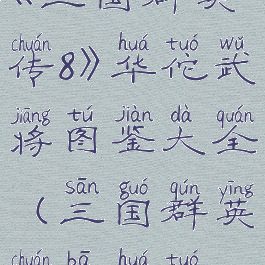 《三国群英
chuán huá tuó wǔ
传8》华佗武
jiāng tú jiàn dà quán
将图鉴大全
sān guó qún yīng
(三国群英
chuán bā huá tuó